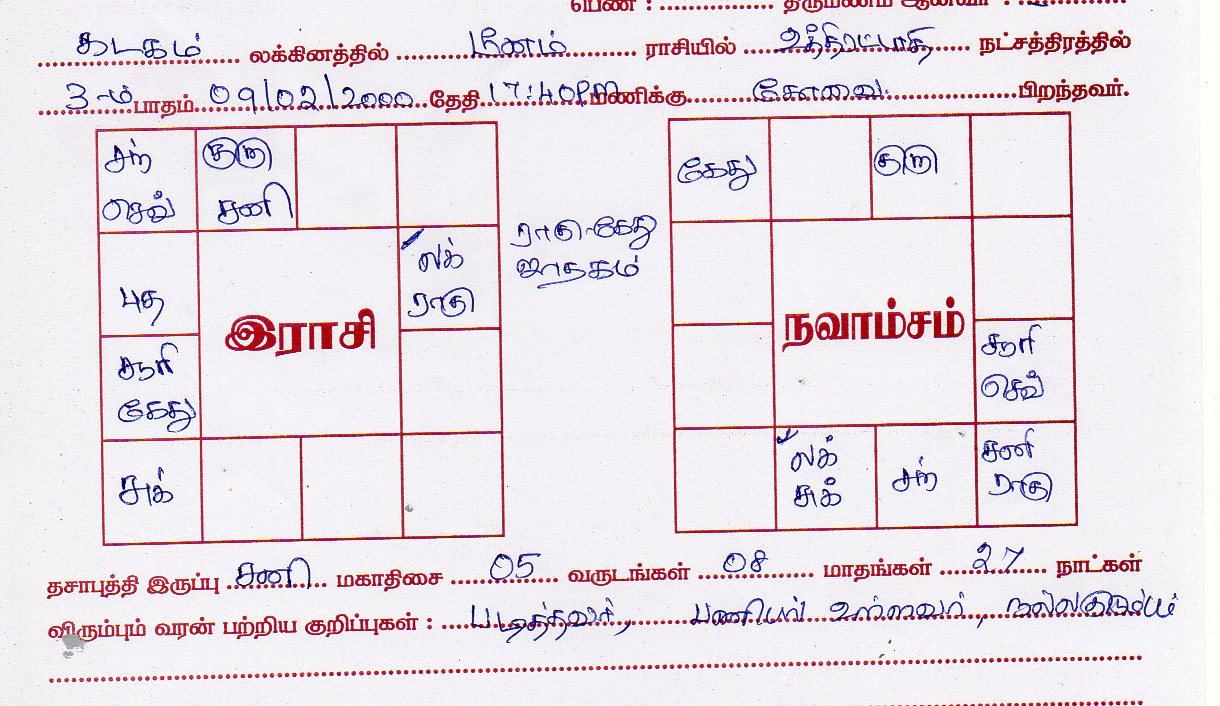 பெண் : .................. திருமணம் ஆனவர் : ..................
கடகம் லக்கினத்தில் மீனம் ராசியில் உத்திரட்டாதி நட்சத்திரத்தில்
3-ம் பாதம் 09/02/2000 தேதி 17:40PM மணிக்கு கோவை பிறந்தவர்.
சந் குரு கேது குரு
செவ் சனி
லக் ராகு-கேது
புத ராகு ஜாதகம்
இராசி நவாம்சம்
சூரி சூரி
கேது செவ்
சுக் லக் சந் சனி
சுக் ராகு
தசாபுத்தி இருப்பு சனி மகாதிசை 05 வருடங்கள் 08 மாதங்கள் 27 நாட்கள்
விரும்பும் வரன் பற்றிய குறிப்புகள் : படித்தவர், பணியில் உள்ளவர், நல்லகுடும்பம்